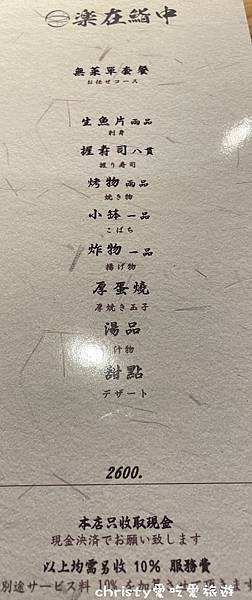 楽在鮨中
無菜單套餐
お任せコース
生魚片 兩品
刺身
握壽司 八貫
握り寿司
烤物 兩品
焼き物
小鉢 一品
こばち
炸物 一品
揚げ物
厚蛋燒
厚焼き玉子
湯品
汁物
甜點
デザート
2600.
本店只收取現金
現金決済でお願い致します
以上均需另收 10% 服務費
別途サービス料 10% を加算させて頂きます
christy愛吃愛旅遊